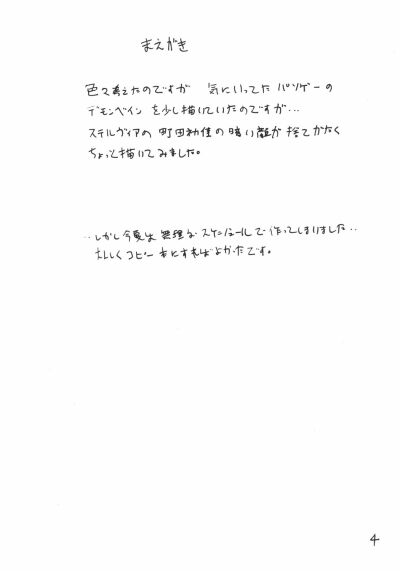 まえがき
色々考えたのですが 気にいってた パソゲーの
デモンベイン を少し描いていたのですが…
ステルヴィアの 町田初佳の暗い顔が 捨てがたく
ちょっと描いてみました。
‥しかし今夏は 無理なスケジュールで 作ってしまいました‥
大人しくコピー本にすればよかったです。
4